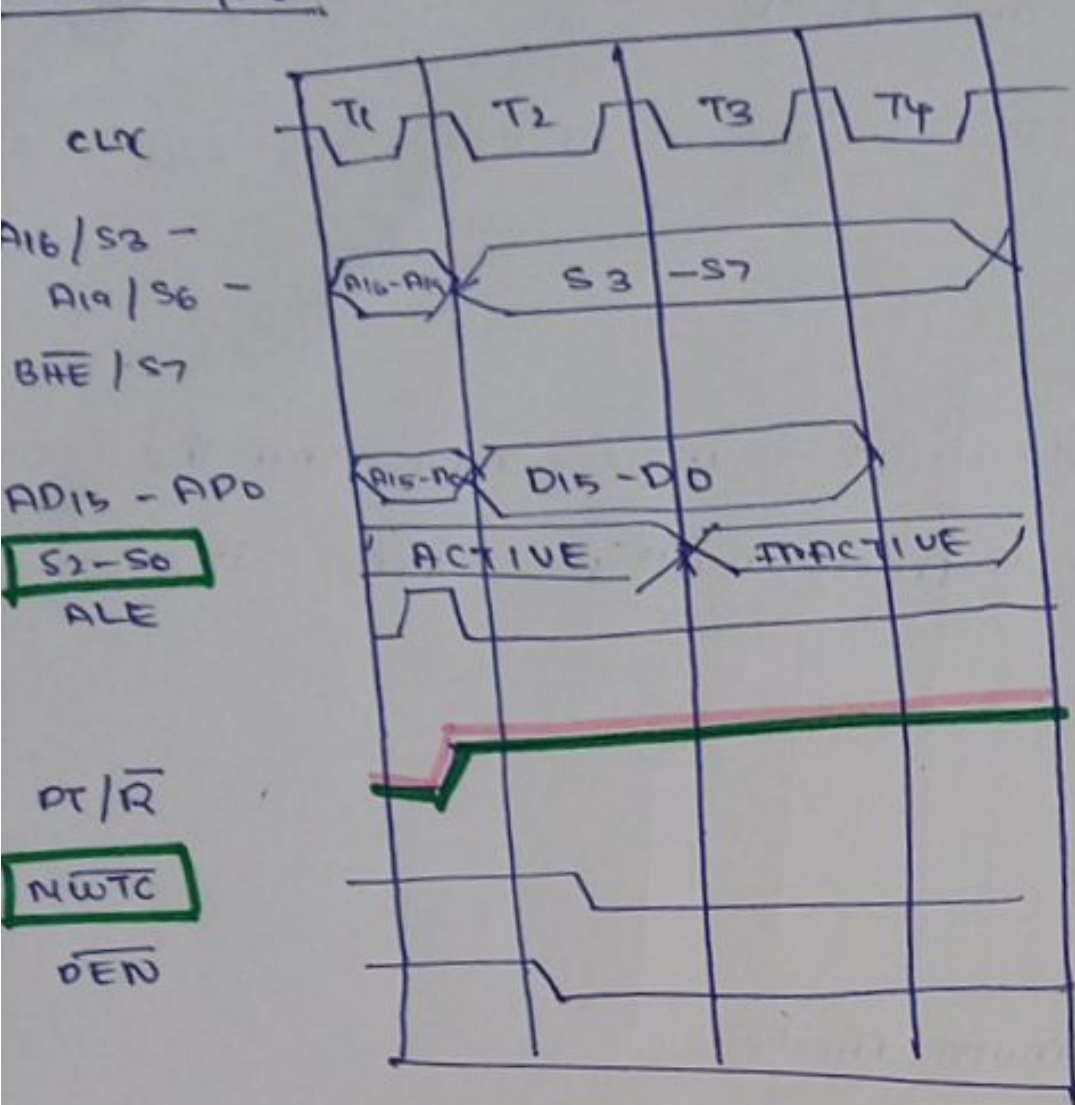 T1 T2 T3 T4
CLK
A16/S3 -
A19/S6 -
A16-A19 S3 - S7
B̅H̅E̅ / S7
AD15 - AD0
A15-A0 D15 - D0
S2-S0
ACTIVE INACTIVE
ALE
DT/R̅
M̅W̅T̅C̅
D̅E̅N̅